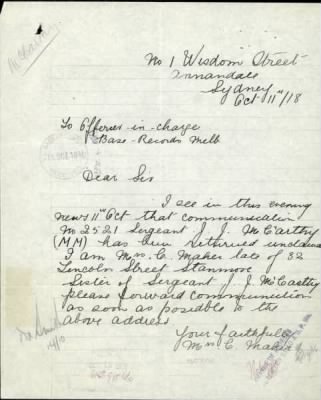 No 1 Wisdom Street
Annandale
Sydney
Oct 11th/18
To Officer-in-charge
Base-Records Melb
Dear Sir
I see in this evening
news 11th Oct that communication
No 2521 Sergeant J. J. McCarthy
(MM) has been returned unclaimed
I am Mrs. C. Maher late of 32
Lincoln Street Stanmore
Sister of Sergeant J. J. McCarthy
please forward communication
as soon as posible to the
above address
Your faithfull
Mrs C. Maher